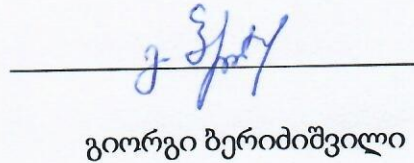 გიორგი ბერიძიშვილი